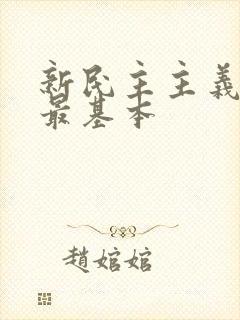 新民主主義
最基本
趙婠婠